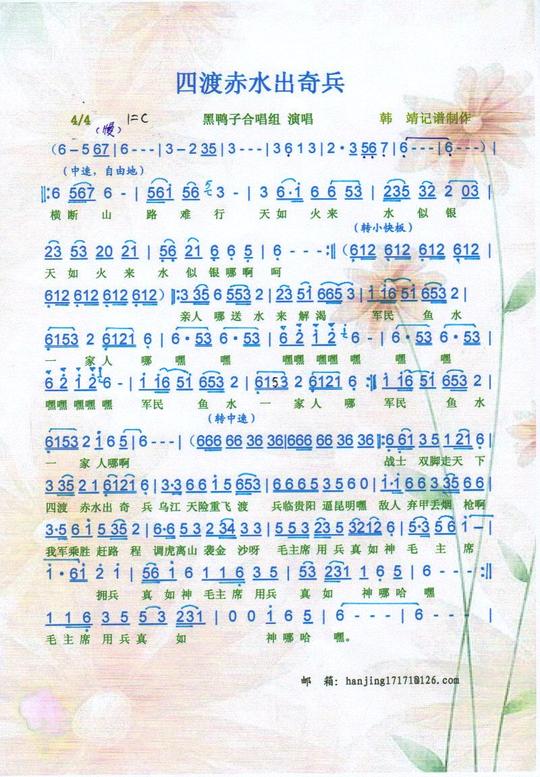 四渡赤水出奇兵
4/4 1=C 黑鸭子合唱组 演唱 韩 靖记谱制作
(慢)
(6-567|6---|3-235|3---|3613|2·3567|6---|6---)|
(中速，自由地)
‖:6 567 6-|561 56 3-|3 6·1 6 6 53|235 32 2 03|
横 断 山 路 难 行 天 如 火 来 水 似 银
(转小快板)
23 53 20 21|56 21 6 6 5|6---:‖(612 612 612 612|
天 如 火 来 水 似 银 哪 啊 呵
612 612 612 612)‖:3 35 6 553 2|23 51 665 3|1 16 51 653 2|
亲人 哪 送 水 来 解 渴 军民 鱼 水
6153 2 6121 6|6·53 6·53|6 2 1 2 6|6·53 6·53|
一 家 人 哪 嘿 嘿 嘿嘿嘿嘿 嘿 嘿
6 2 1 2 6-|1 16 51 653 2|6153 2 6121 6:‖1 16 51 653 2|
嘿嘿 嘿嘿 嘿 军民 鱼 水 一 家 人 哪 军民 鱼 水
(转中速)
6153 2 1 6 5|6---|(666 66 36 36|666 66 36 36)‖:6 61 35 121 6|
一 家 人哪啊 战士 双脚走天 下
3 35 21 6121 6|3·3 66 1 15 6|3 35 6156 53|1·1 66 335 66|
四渡 赤水出 奇 兵 乌江 天险重飞 渡 兵临贵阳 逼昆明嘿 敌人 弃甲丢烟 枪啊
3·5 61 5 35 2|6·6 53 2 34 33|55 235 3212 6|5·3 56 1-|
我军乘胜 赶路 程 调虎离山 袭金 沙呀 毛主席 用兵 真如 神 毛 主 席
1·61 2 1|56 1 6 116 35|53 231 1 6 5|6---:‖
拥兵 真 如 神 毛主席 用兵 真 如 神哪哈 嘿
116 35 53 231|0 0 1 6 5|6---|6---|
毛主席 用兵 真 如 神哪哈 嘿。
邮 箱: hanjing17171@126.com